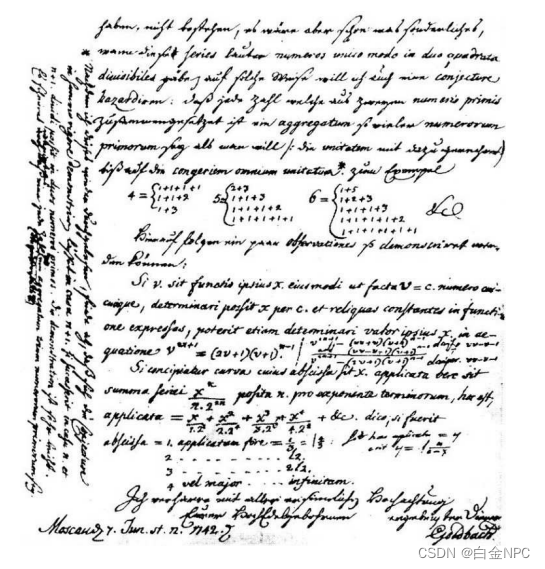 haben, nicht bestehen, es wäre aber schon was sonderliches,
wann diese series lauter numeros unico modo in duo quadrata
divisibiles gäbe, auf solche Weise will ich auch eine conjecture
hazardiren: daß jede Zahl welche aus zweyen numeris primis
zusammengesetzet ist ein aggregatum so vieler numerorum
primorum sey als man will /: die unitatem mit dazu gerechnet:/
biß auf die congeriem omnium unitatum*. zum Exempel
4 = { 1+1+1+1 5 = { 2+3 6 = { 1+5
1+1+2 1+1+3 1+2+3
1+3 1+1+1+2 1+1+1+3
1+1+1+1+1 1+1+1+1+2
1+1+1+1+1+1 &c
Hierauf folgen ein paar observationes so demonstriret wer-
den können:
Si v. sit functio ipsius x. eiusmodi ut facta v = c. numero cui-
cunque, determinari possit x per c. et reliquas constantes in functi-
one expressas, poterit etiam determinari valor ipsius x. in ae-
quatione v²ⁿ⁺¹ = (2v+1)(v+1)ⁿ⁻¹
Si concipiatur curva cuius abscissa sit x. applicata vero sit
summa seriei xⁿ/n.2²ⁿ posita n. pro exponente terminorum, hoc est,
applicata = x/1.2² + x²/2.2⁴ + x³/3.2⁶ + x⁴/4.2⁸ + &c. dico, si fuerit
abscissa = 1. applicatam fore = l 4/3
2 - - - - - l2.
3 - - - - - 2l2.
4 vel major - - - - infinitam.
Ich verharre mit aller Hochachtung
Eurer Hochedelgebohrnen ergebenster Diener
Moscau d. 7. Jun. st. n. 1742. Goldbach.
* Nachdem ich dieses wieder durchgelesen, finde ich daß sich die conjecture
in summo rigore demonstriren lässet in casu n+1. si successerit in casu n. et
n+1. dividi possit in duos numeros primos. Die demonstration ist sehr leicht.
Es scheinet aggregatum trium numerorum primorum sey.
CSDN @白金NPC